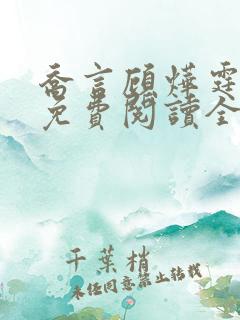 喬言顧燁霆
免費閱讀全
千葉梢
未经同意禁止转载